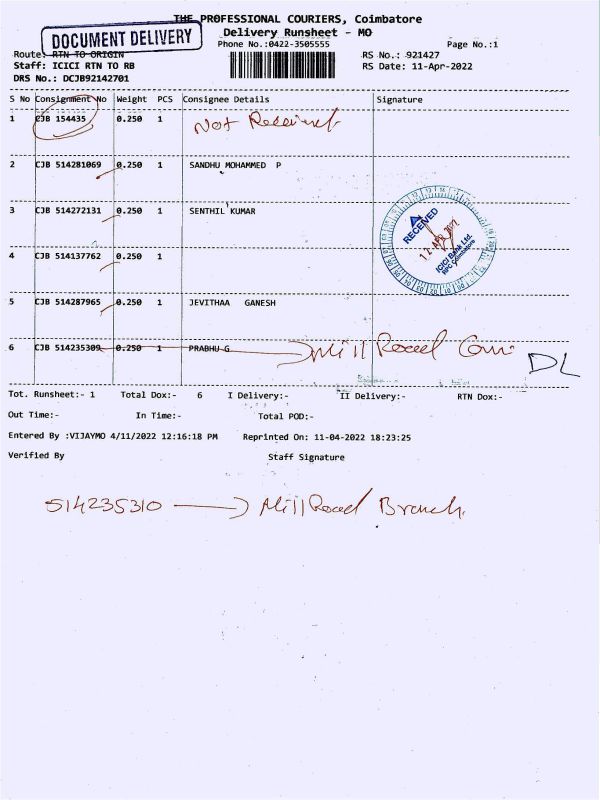 THE PROFESSIONAL COURIERS, Coimbatore
DOCUMENT DELIVERY
Delivery Runsheet - MO
Phone No.:0422-3505555
Page No.:1
Route: RTN TO ORIGIN
RS No.: 921427
Staff: ICICI RTN TO RB
RS Date: 11-Apr-2022
DRS No.: DCJB92142701
S No Consignment No Weight PCS Consignee Details Signature
1 CJB 154435 0.250 1 Not Received
2 CJB 514281069 0.250 1 SANDHU MOHAMMED P
3 CJB 514272131 0.250 1 SENTHIL KUMAR
RECEIVED
12 APR 2022
ICICI Bank Ltd.
RPC Coimbatore
4 CJB 514137762 0.250 1
5 CJB 514287965 0.250 1 JEVITHAA GANESH
6 CJB 514235309 0.250 1 PRABHU G Mill Road
DL
Tot. Runsheet:- 1 Total Dox:- 6 I Delivery:- II Delivery:- RTN Dox:-
Out Time:- In Time:- Total POD:-
Entered By :VIJAYMO 4/11/2022 12:16:18 PM Reprinted On: 11-04-2022 18:23:25
Verified By Staff Signature
514235310 Mill Road Branch